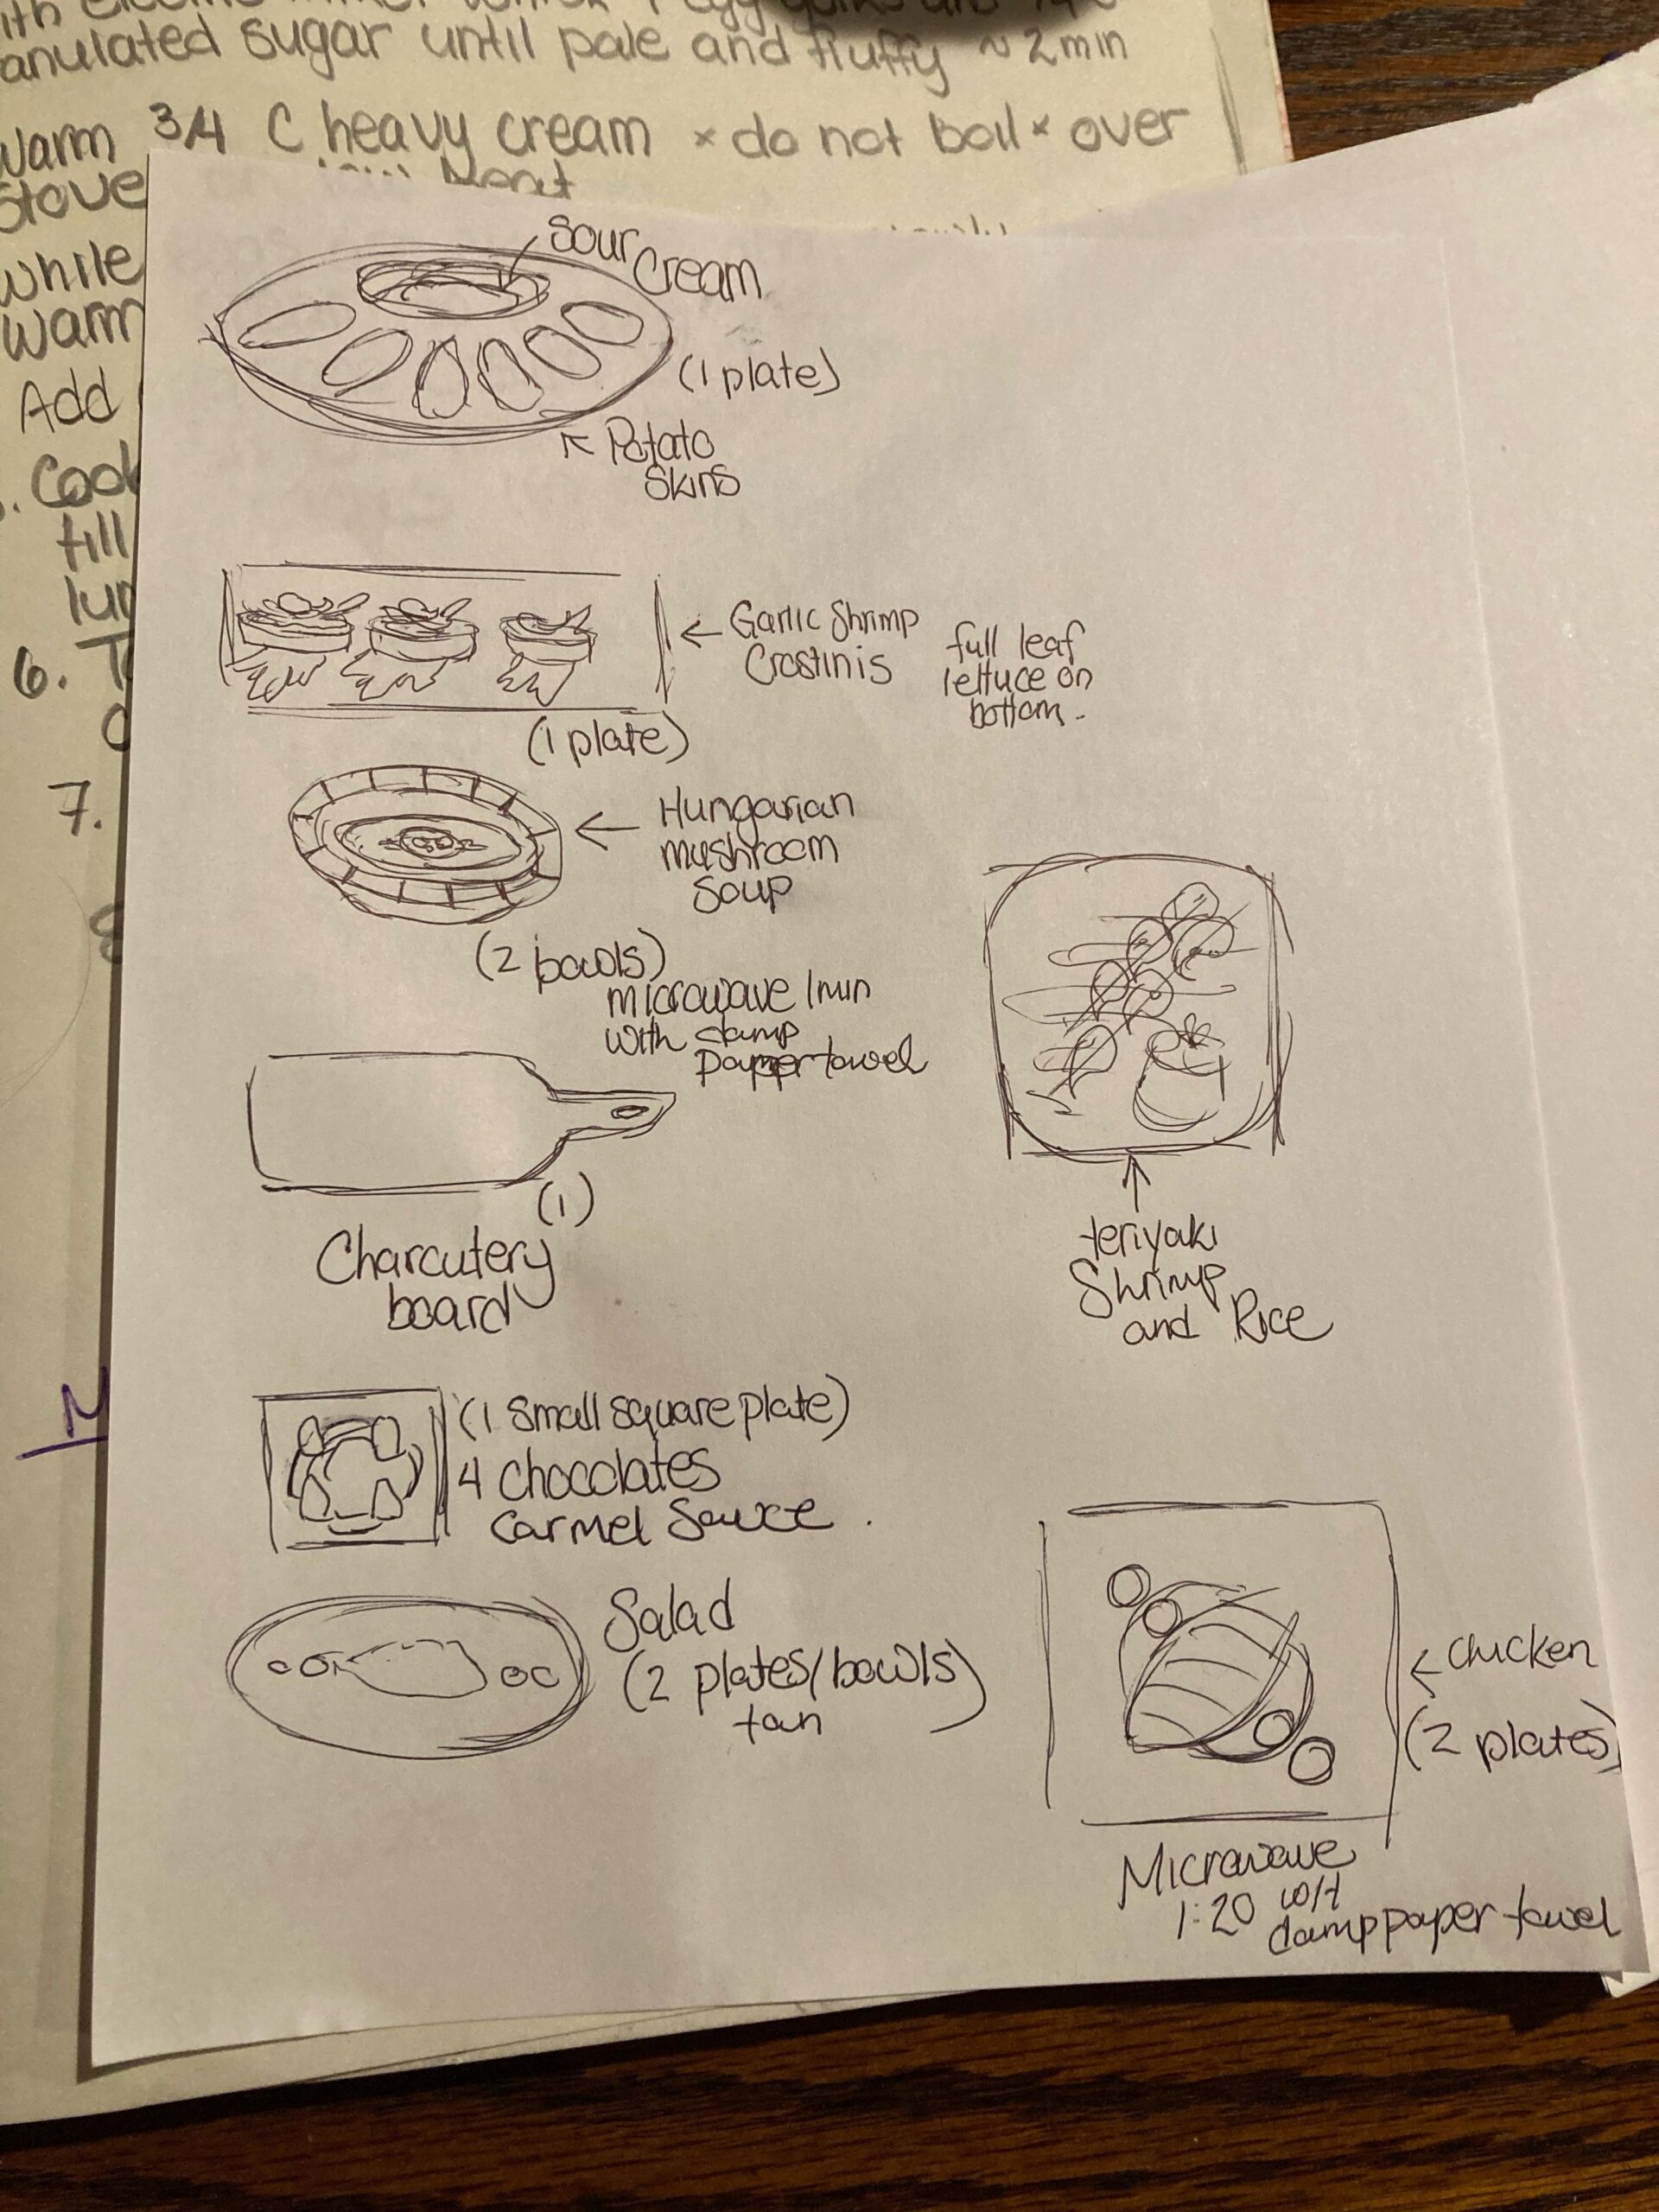 anulated sugar until pale and fluffy ~ 2 min
Warm 3/4 C heavy cream × do not boil × over
Stove
while
warm
Add
Cook
till
6.
7.
Sour
Cream
(1 plate)
Potato
Skins
Garlic Shrimp
Crostinis
full leaf
lettuce on
bottom.
(1 plate)
Hungarian
mushroom
Soup
(2 bowls)
microwave 1min
with damp
paper towel
(1)
Charcutery
board
teriyaki
Shrimp
and Rice
(1 Small square plate)
4 chocolates
Carmel Sauce.
Salad
(2 plates/bowls)
tan
chicken
(2 plates)
Microwave
1:20 w/t
damp paper towel